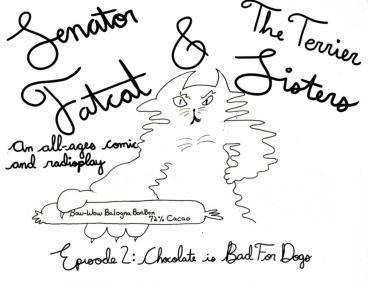 Senator
Fatcat
&
The Terrier
Sisters
An all-ages comic
and radioplay
Bow-Wow Balogna BonBon
72% Cacao
Episode 2: Chocolate is Bad For Dogs